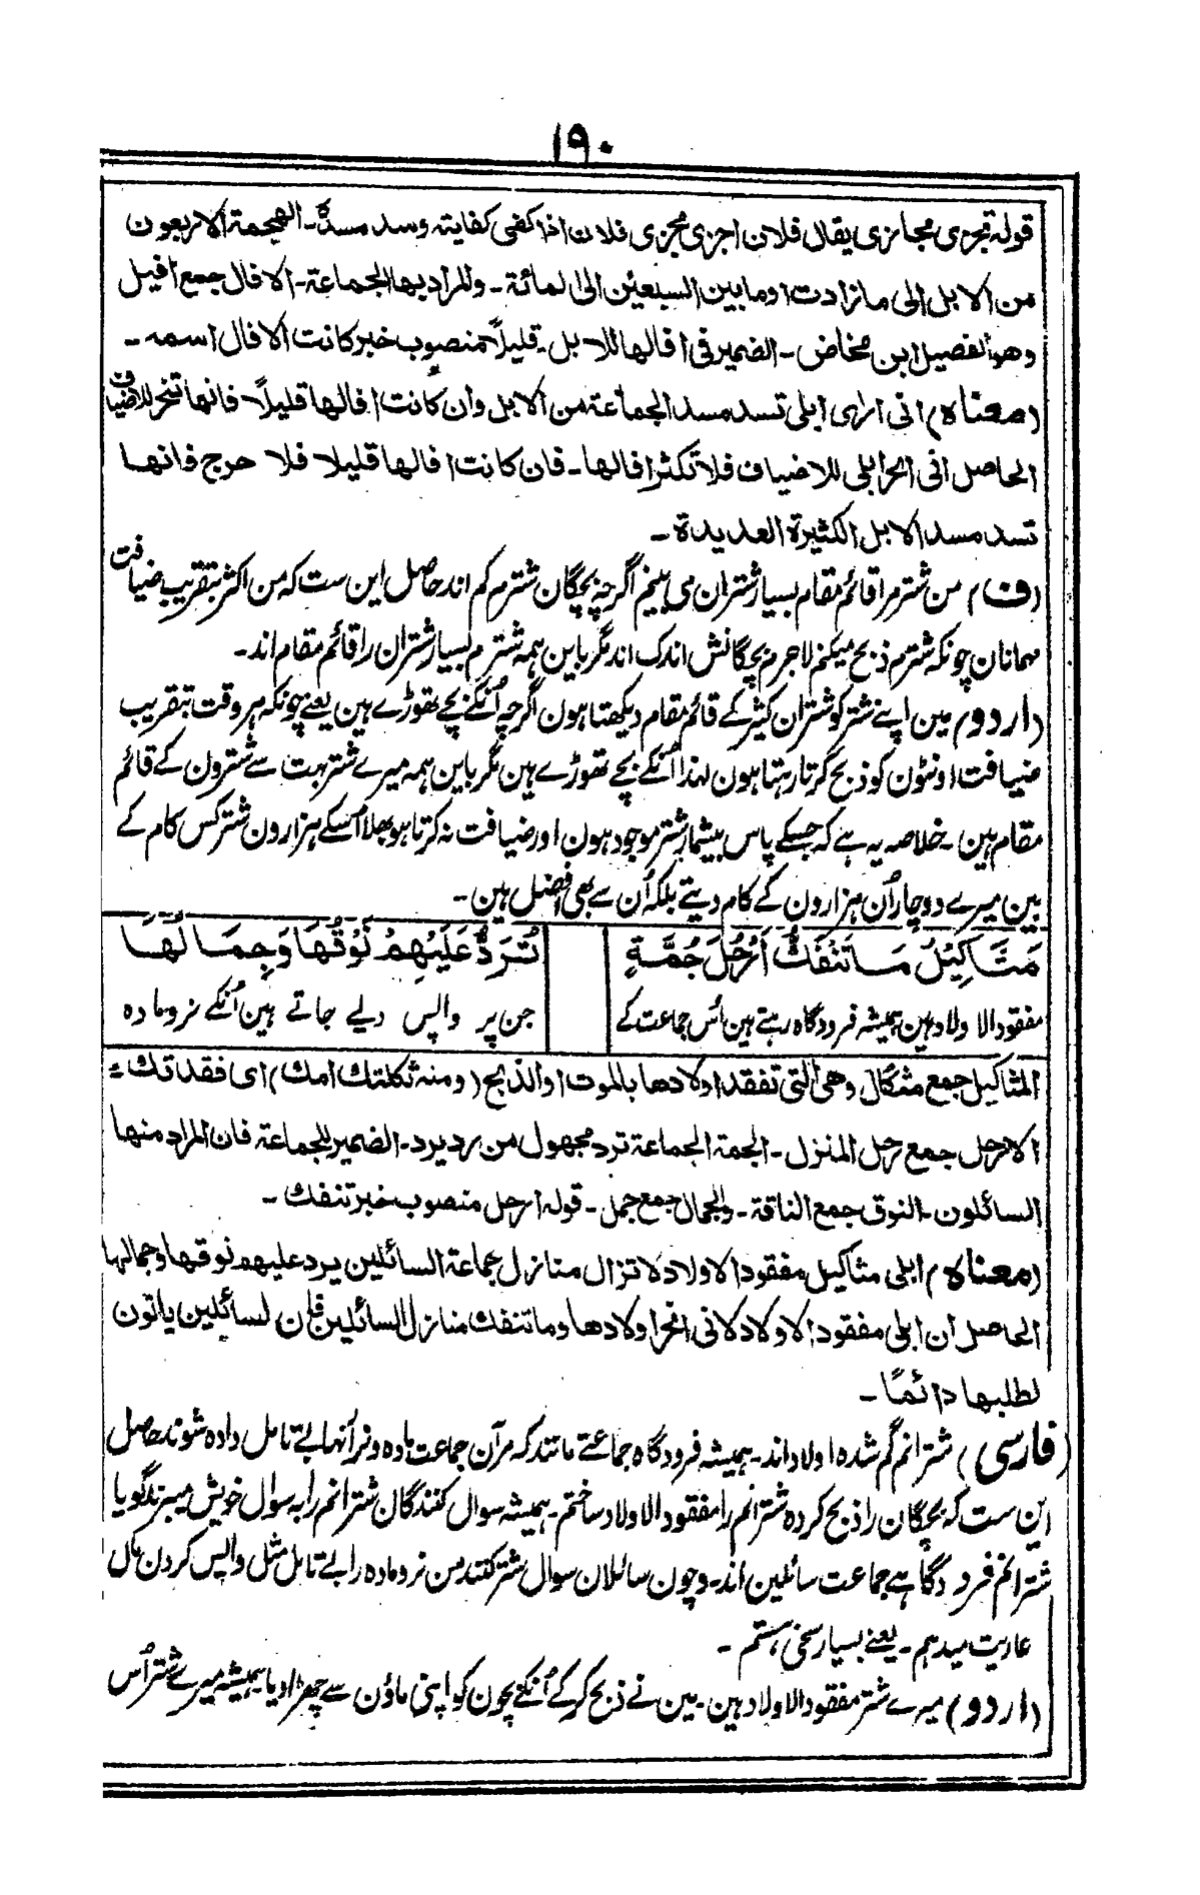 ۱۹۰
قوله تجزی مجازی یقال فلان اجزی مجزی فلان اذا کفی کفایته وسد مسدہ۔ الهجمة الاربعون
من الابل الی مازادت اومابین السبعین الی المائة۔ والمراد بها الجماعة۔ الافال جمع افیل
وهو الفصیل ابن مخاض۔ الضمیر فی افالها للابل۔ قلیلاً منصوب خبر کانت الافال اسمه۔
(معناه) انی ارای ابلی تسد مسد الجماعة من الابل وان کانت افالها قلیلاً فانها تنحر للاضیاف
الحاصل انی انحر ابلی للاضیاف فلا تکثر افالها۔ فان کانت افالها قلیلا فلا حرج فانها
تسد مسد الابل الکثیرة العدیدة۔
(ف) من شترم را قائم مقام بسیار شتران می بینم اگرچه بچگان شترم کم اند حاصل این ست که من اکثر بتقریب ضیافت
مهمانان چونکه شترم ذبح میکنم لاجرم بچگانش اندک اند مگر باین همه شترم بسیار شتران را قائم مقام اند۔
(اردو) مین اپنے شتر کو شتران کثیر کے قائم مقام دیکھتا ہون اگرچہ اُنکے بچے تھوڑے ہین یعنے چونکہ ہر وقت بتقریب
ضیافت اونٹون کو ذبح کرتا رہتا ہون لہذا اُنکے بچے تھوڑے ہین مگر باین ہمہ میرے شتر بہت سے شترون کے قائم
مقام ہین۔ خلاصہ یہ ہے کہ جسکے پاس بیشمار شتر موجود ہون اور ضیافت نہ کرتا ہو بھلا اُسکے ہزارون شتر کس کام کے
ہین میرے دو چار اُن ہزارون کے کام دیتے بلکہ اُن سے بھی افضل ہین۔
مَثَاكِيْلُ مَا تَنْفَكُّ اَرْحُلَ جُمَّةٍ    تُرَدُّ عَلَيْهِمْ نُوْقُهَا وَجِمَالُهَا
مفقود الاولاد ہین ہمیشہ فرودگاہ رہتے ہین اُس جماعت کے    جن پر واپس دیے جاتے ہین اُنکے نر و مادہ
المثاکیل جمع مثکال وهی التی تفقد اولادها بالموت او الذبح (ومنه ثکلتك امك) ای فقدتك۔
الارحل جمع رحل المنزل۔ الجمة الجماعة ترد مجهول من رد یرد۔ الضمیر للجماعة فان المراد منها
السائلون۔ النوق جمع الناقة۔ والجمال جمع جمل۔ قوله ارحل منصوب خبر تنفك۔
(معناه) ابلی مثاکیل مفقود الاولاد لا تزال منازل جماعة السائلین یرد علیهم نوقها وجمالها
الحاصل ان ابلی مفقود الاولاد لانی انحر اولادها وما تنفك منازل السائلین فان السائلین یاتون
لطلبها دائمًا۔
(فارسی) شترانم گم شده اولاد اند۔ همیشه فرودگاه جماعتے مانند که مر آن جماعت ماده و نر آنها بے تامل داده شوند حاصل
این ست که بچگان را ذبح کرده شترانم را مفقود الاولاد ساختم۔ همیشه سوال کنندگان شترانم را به سوال خویش میبرند گویا
شترانم فرودگاهے جماعت سائلین اند۔ و چون سائلان سوال شتر کنند من نر و ماده را بے تامل مثل واپس کردن مال
عاریت میدهم۔ یعنے بسیار سخی هستم۔
(اردو) میرے شتر مفقود الاولاد ہین۔ مین نے ذبح کر کے اُنکے بچون کو اپنی ماؤن سے چھڑا دیا ہمیشہ میرے شتر اُس